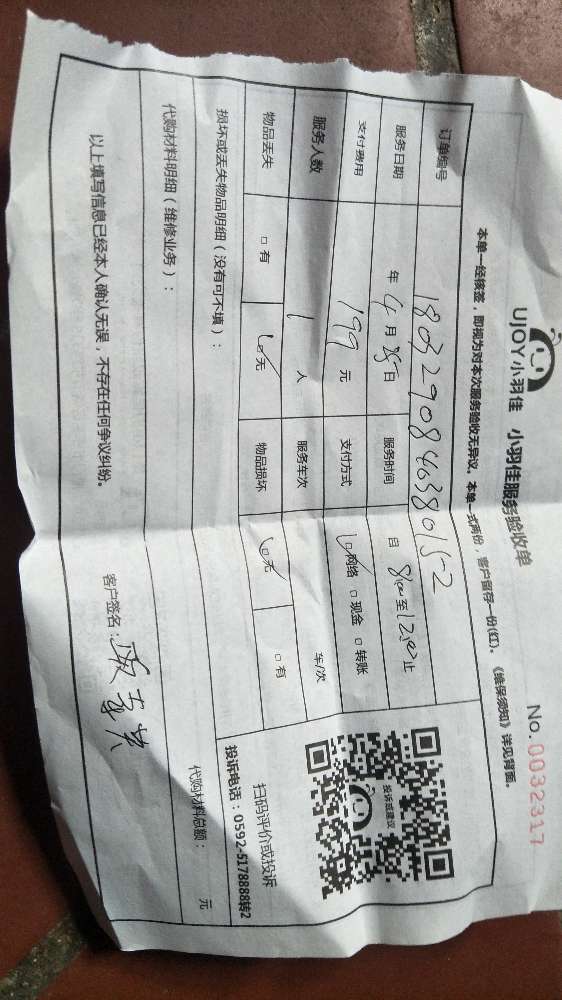 UJOY小羽佳 小羽佳服务验收单 No.0032317
本单一经核签，即视为对本次服务验收无异议。本单一式两份，客户留存一份(红)。《维保须知》详见背面。
订单编号 180329084038015-2
服务日期 年 4月 28日 服务时间 自 8:00至12:00止
支付费用 199 元 支付方式 ☑网络 □现金 □转账
服务人数 1 人 服务车次 车/次
物品丢失 □有 ☑无 物品损坏 ☑无 □有
投诉或建议
扫码评价或投诉
投诉电话：0592-5178888转2
损坏或丢失物品明细（没有可不填）：
代购材料明细（维修业务）： 代购材料总额： 元
以上填写信息已经本人确认无误，不存在任何争议纠纷。
客户签名：